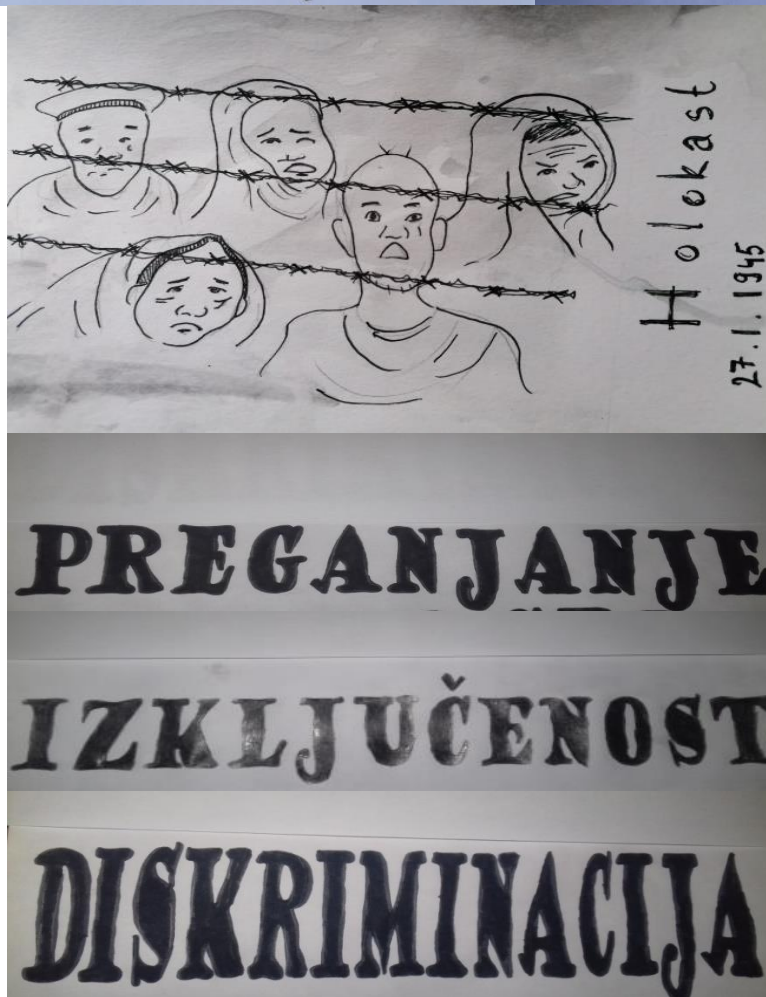 Holokast
27.1.1945
PREGANJANJE
IZKLJUČENOST
DISKRIMINACIJA